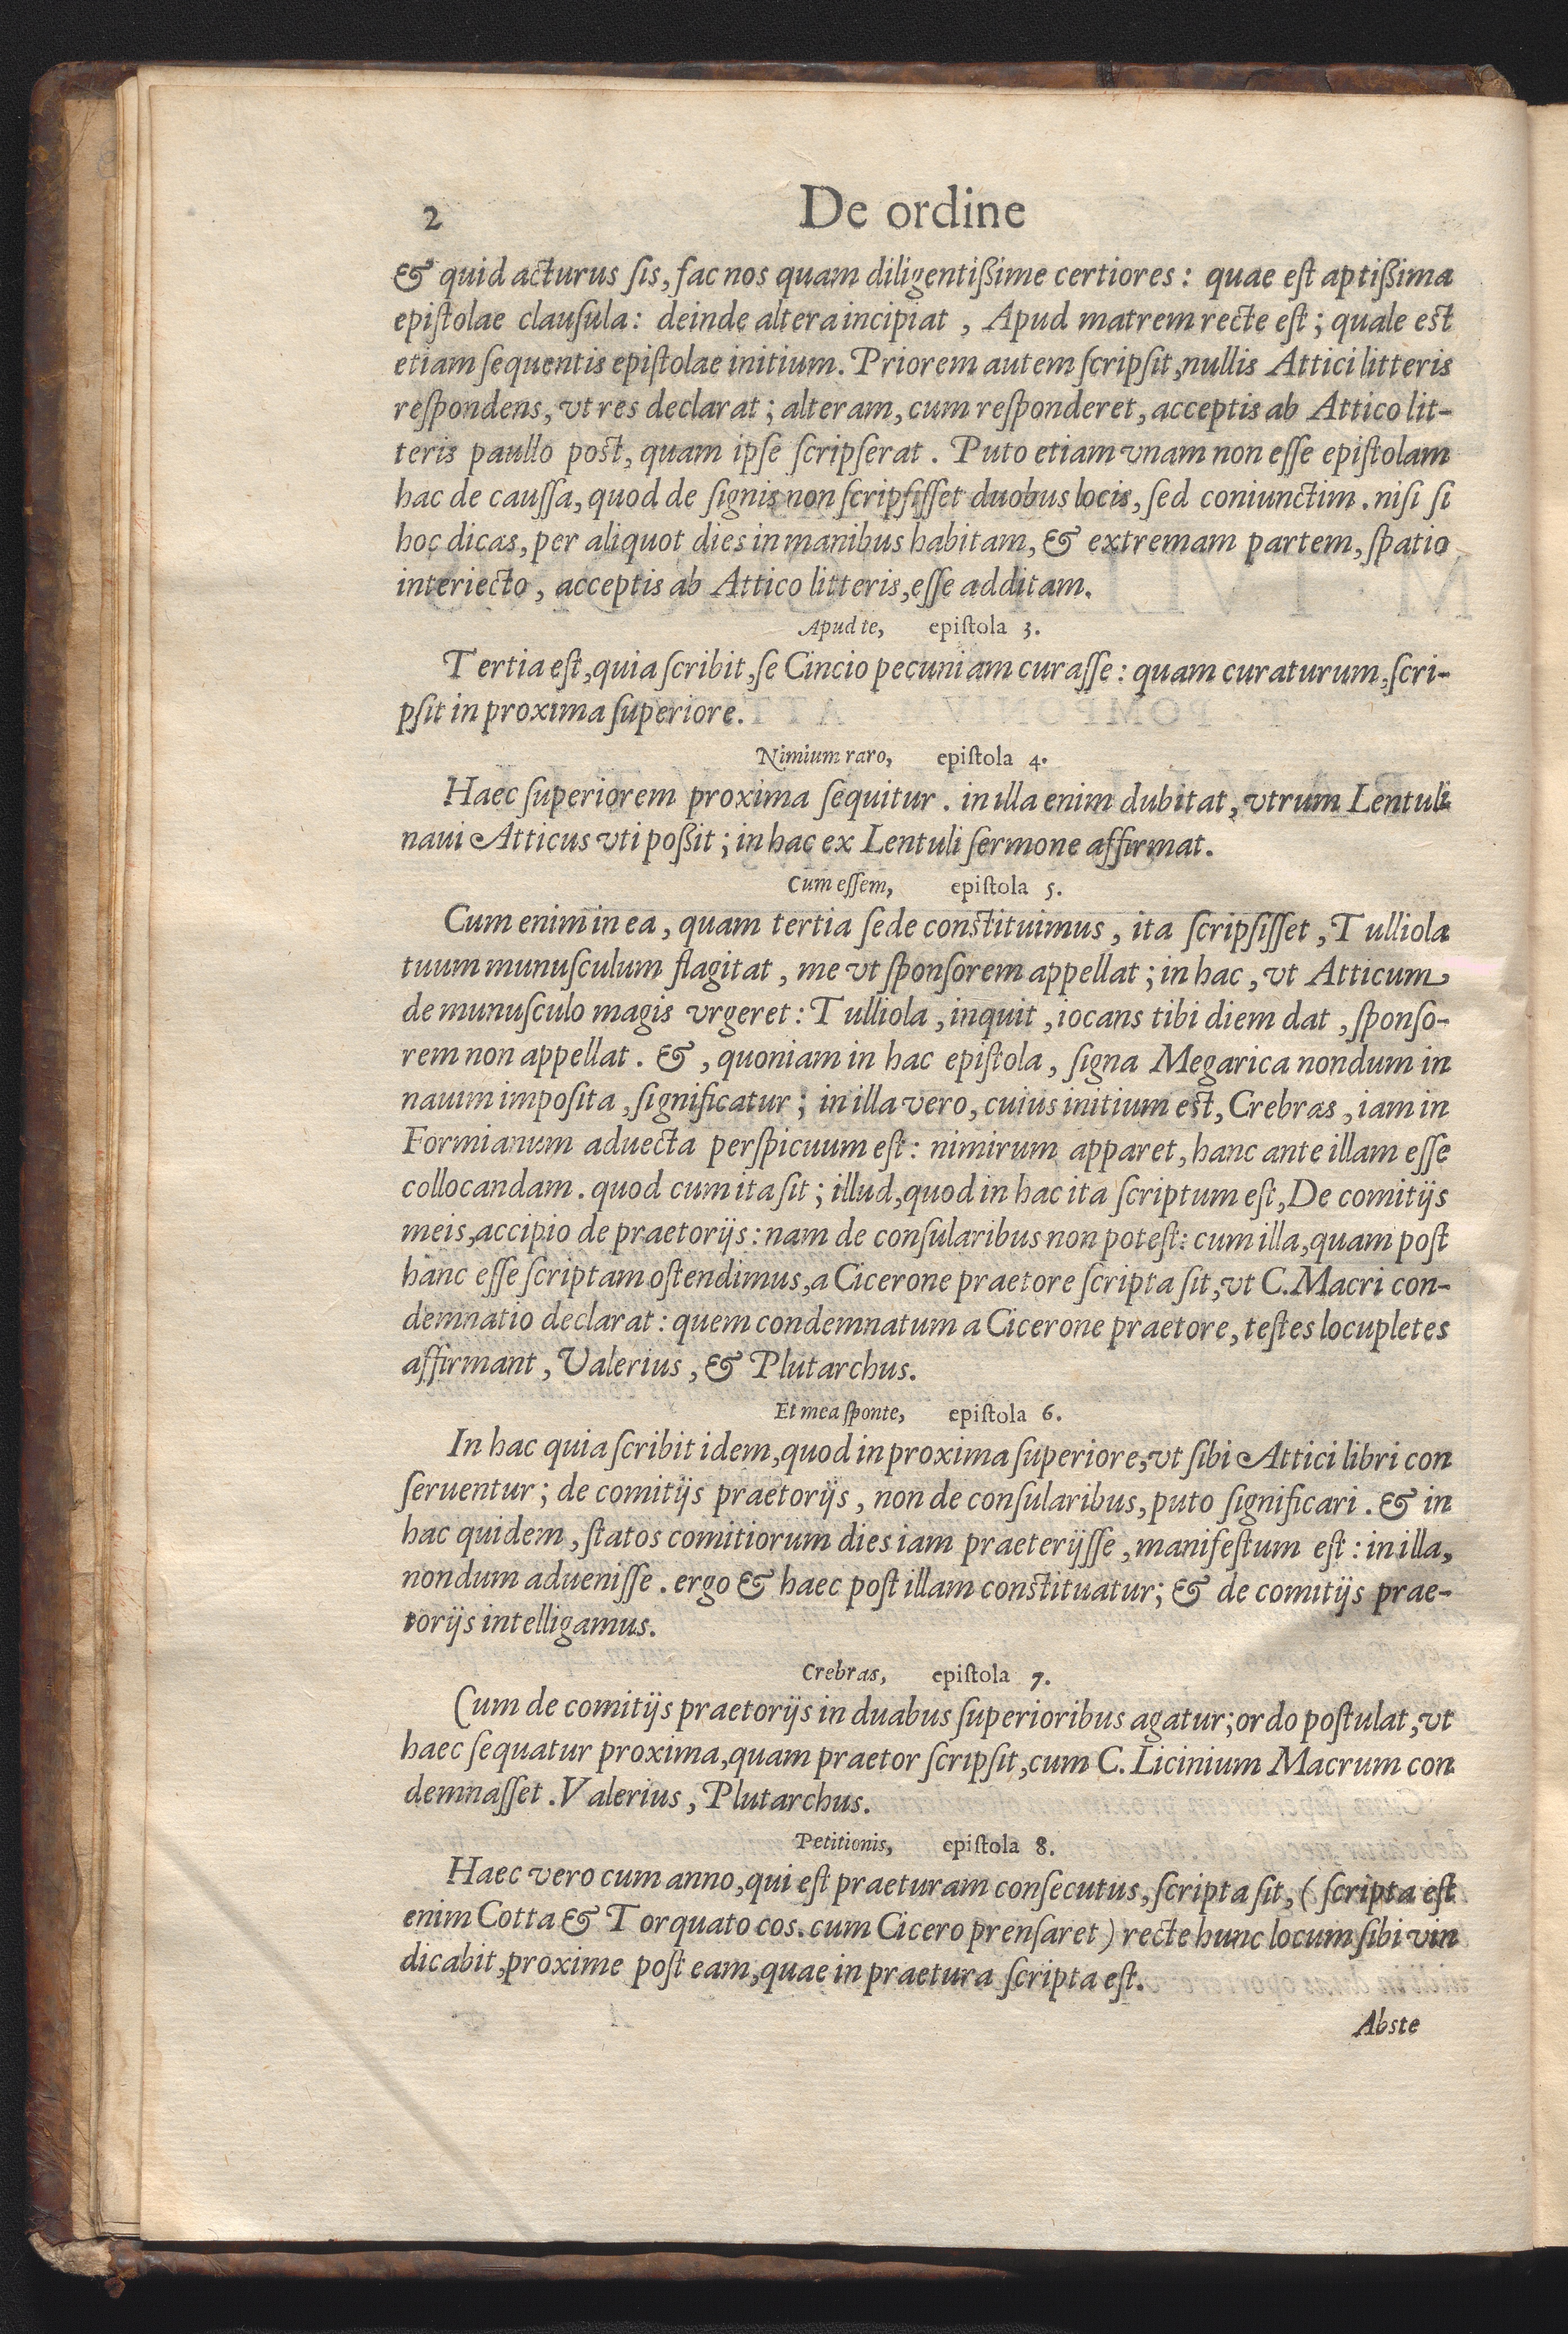 2 De ordine
& quid acturus sis, fac nos quam diligentißime certiores: quae est aptißima
epistolae clausula: deinde altera incipiat, Apud matrem recte est; quale est
etiam sequentis epistolae initium. Priorem autem scripsit, nullis Attici litteris
respondens, vt res declarat; alteram, cum responderet, acceptis ab Attico lit-
teris paullo post, quam ipse scripserat. Puto etiam vnam non esse epistolam
hac de caussa, quod de signis non scripsisset duobus locis, sed coniunctim. nisi si
hoc dicas, per aliquot dies in manibus habitam, & extremam partem, spatio
interiecto, acceptis ab Attico litteris, esse additam.
Apud te, epistola 3.
Tertia est, quia scribit, se Cincio pecuniam curasse: quam curaturum, scri-
psit in proxima superiore.
Nimium raro, epistola 4.
Haec superiorem proxima sequitur. in illa enim dubitat, vtrum Lentuli
naui Atticus vti poßit; in hac ex Lentuli sermone affirmat.
Cum essem, epistola 5.
Cum enim in ea, quam tertia sede constituimus, ita scripsisset, Tulliola
tuum munusculum flagitat, me vt sponsorem appellat; in hac, vt Atticum
de munusculo magis vrgeret: Tulliola, inquit, iocans tibi diem dat, sponso-
rem non appellat. &, quoniam in hac epistola, signa Megarica nondum in
nauim imposita, significatur; in illa vero, cuius initium est, Crebras, iam in
Formianum aduecta perspicuum est: nimirum apparet, hanc ante illam esse
collocandam. quod cum ita sit; illud, quod in hac ita scriptum est, De comitijs
meis, accipio de praetorijs: nam de consularibus non potest: cum illa, quam post
hanc esse scriptam ostendimus, a Cicerone praetore scripta sit, vt C. Macri con-
demnatio declarat: quem condemnatum a Cicerone praetore, testes locupletes
affirmant, Valerius, & Plutarchus.
Et mea sponte, epistola 6.
In hac quia scribit idem, quod in proxima superiore, vt sibi Attici libri con
seruentur; de comitijs praetorijs, non de consularibus, puto significari. & in
hac quidem, statos comitiorum dies iam praeterijsse, manifestum est: in illa,
nondum aduenisse. ergo & haec post illam constituatur; & de comitijs prae-
torijs intelligamus.
Crebras, epistola 7.
Cum de comitijs praetorijs in duabus superioribus agatur; ordo postulat, vt
haec sequatur proxima, quam praetor scripsit, cum C. Licinium Macrum con
demnasset. Valerius, Plutarchus.
Petitionis, epistola 8.
Haec vero cum anno, qui est praeturam consecutus, scripta sit, (scripta est
enim Cotta & Torquato cos. cum Cicero prensaret) recte hunc locum sibi vin
dicabit, proxime post eam, quae in praetura scripta est.
Abste